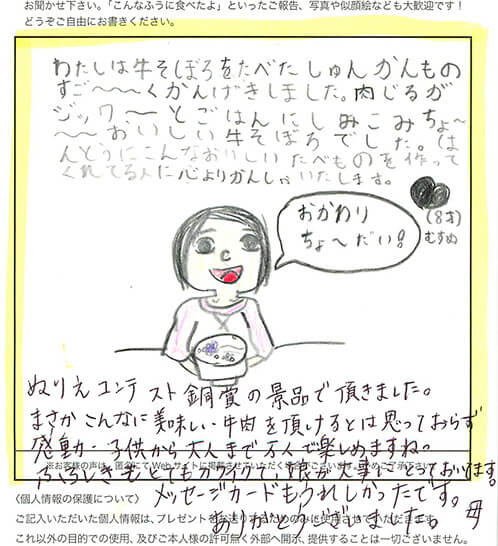 お聞かせ下さい。「こんなふうに食べたよ」といったご報告、写真や似顔絵なども大歓迎です！
どうぞご自由にお書きください。
わたしは牛そぼろをたべた しゅんかんもの
すご〜〜〜くかんげきしました。肉じるが
ジッワ、〜とごはんにしみこみちょ〜
〜〜おいしい牛そぼろでした。ほ
んとうにこんなおいしいたべものを作って
くれてる人に心よりかんしゃいたします。
(8才)
むすめ
おかわり
ちょ〜だい！
ぬりえコンテスト銅賞の景品で頂きました。
まさかこんなに美味しい牛肉を頂けるとは思っておらず
感動!! 子供から大人まで万人で楽しめますね。
※お客様の声は、匿名にてWebサイトに掲載させていただく場合がございます。予めご了承下さい。
ふろしきもとてもカワイクて、娘が大事にとっております。
メッセージカードもうれしかったです。
ありがとうございました。 母
〈個人情報の保護について〉
ご記入いただいた個人情報は、プレゼントをお送りするためのみに使用させていただきます。
これ以外の目的での使用、及びご本人様の許可無く外部へ開示、提供することは一切ございません。